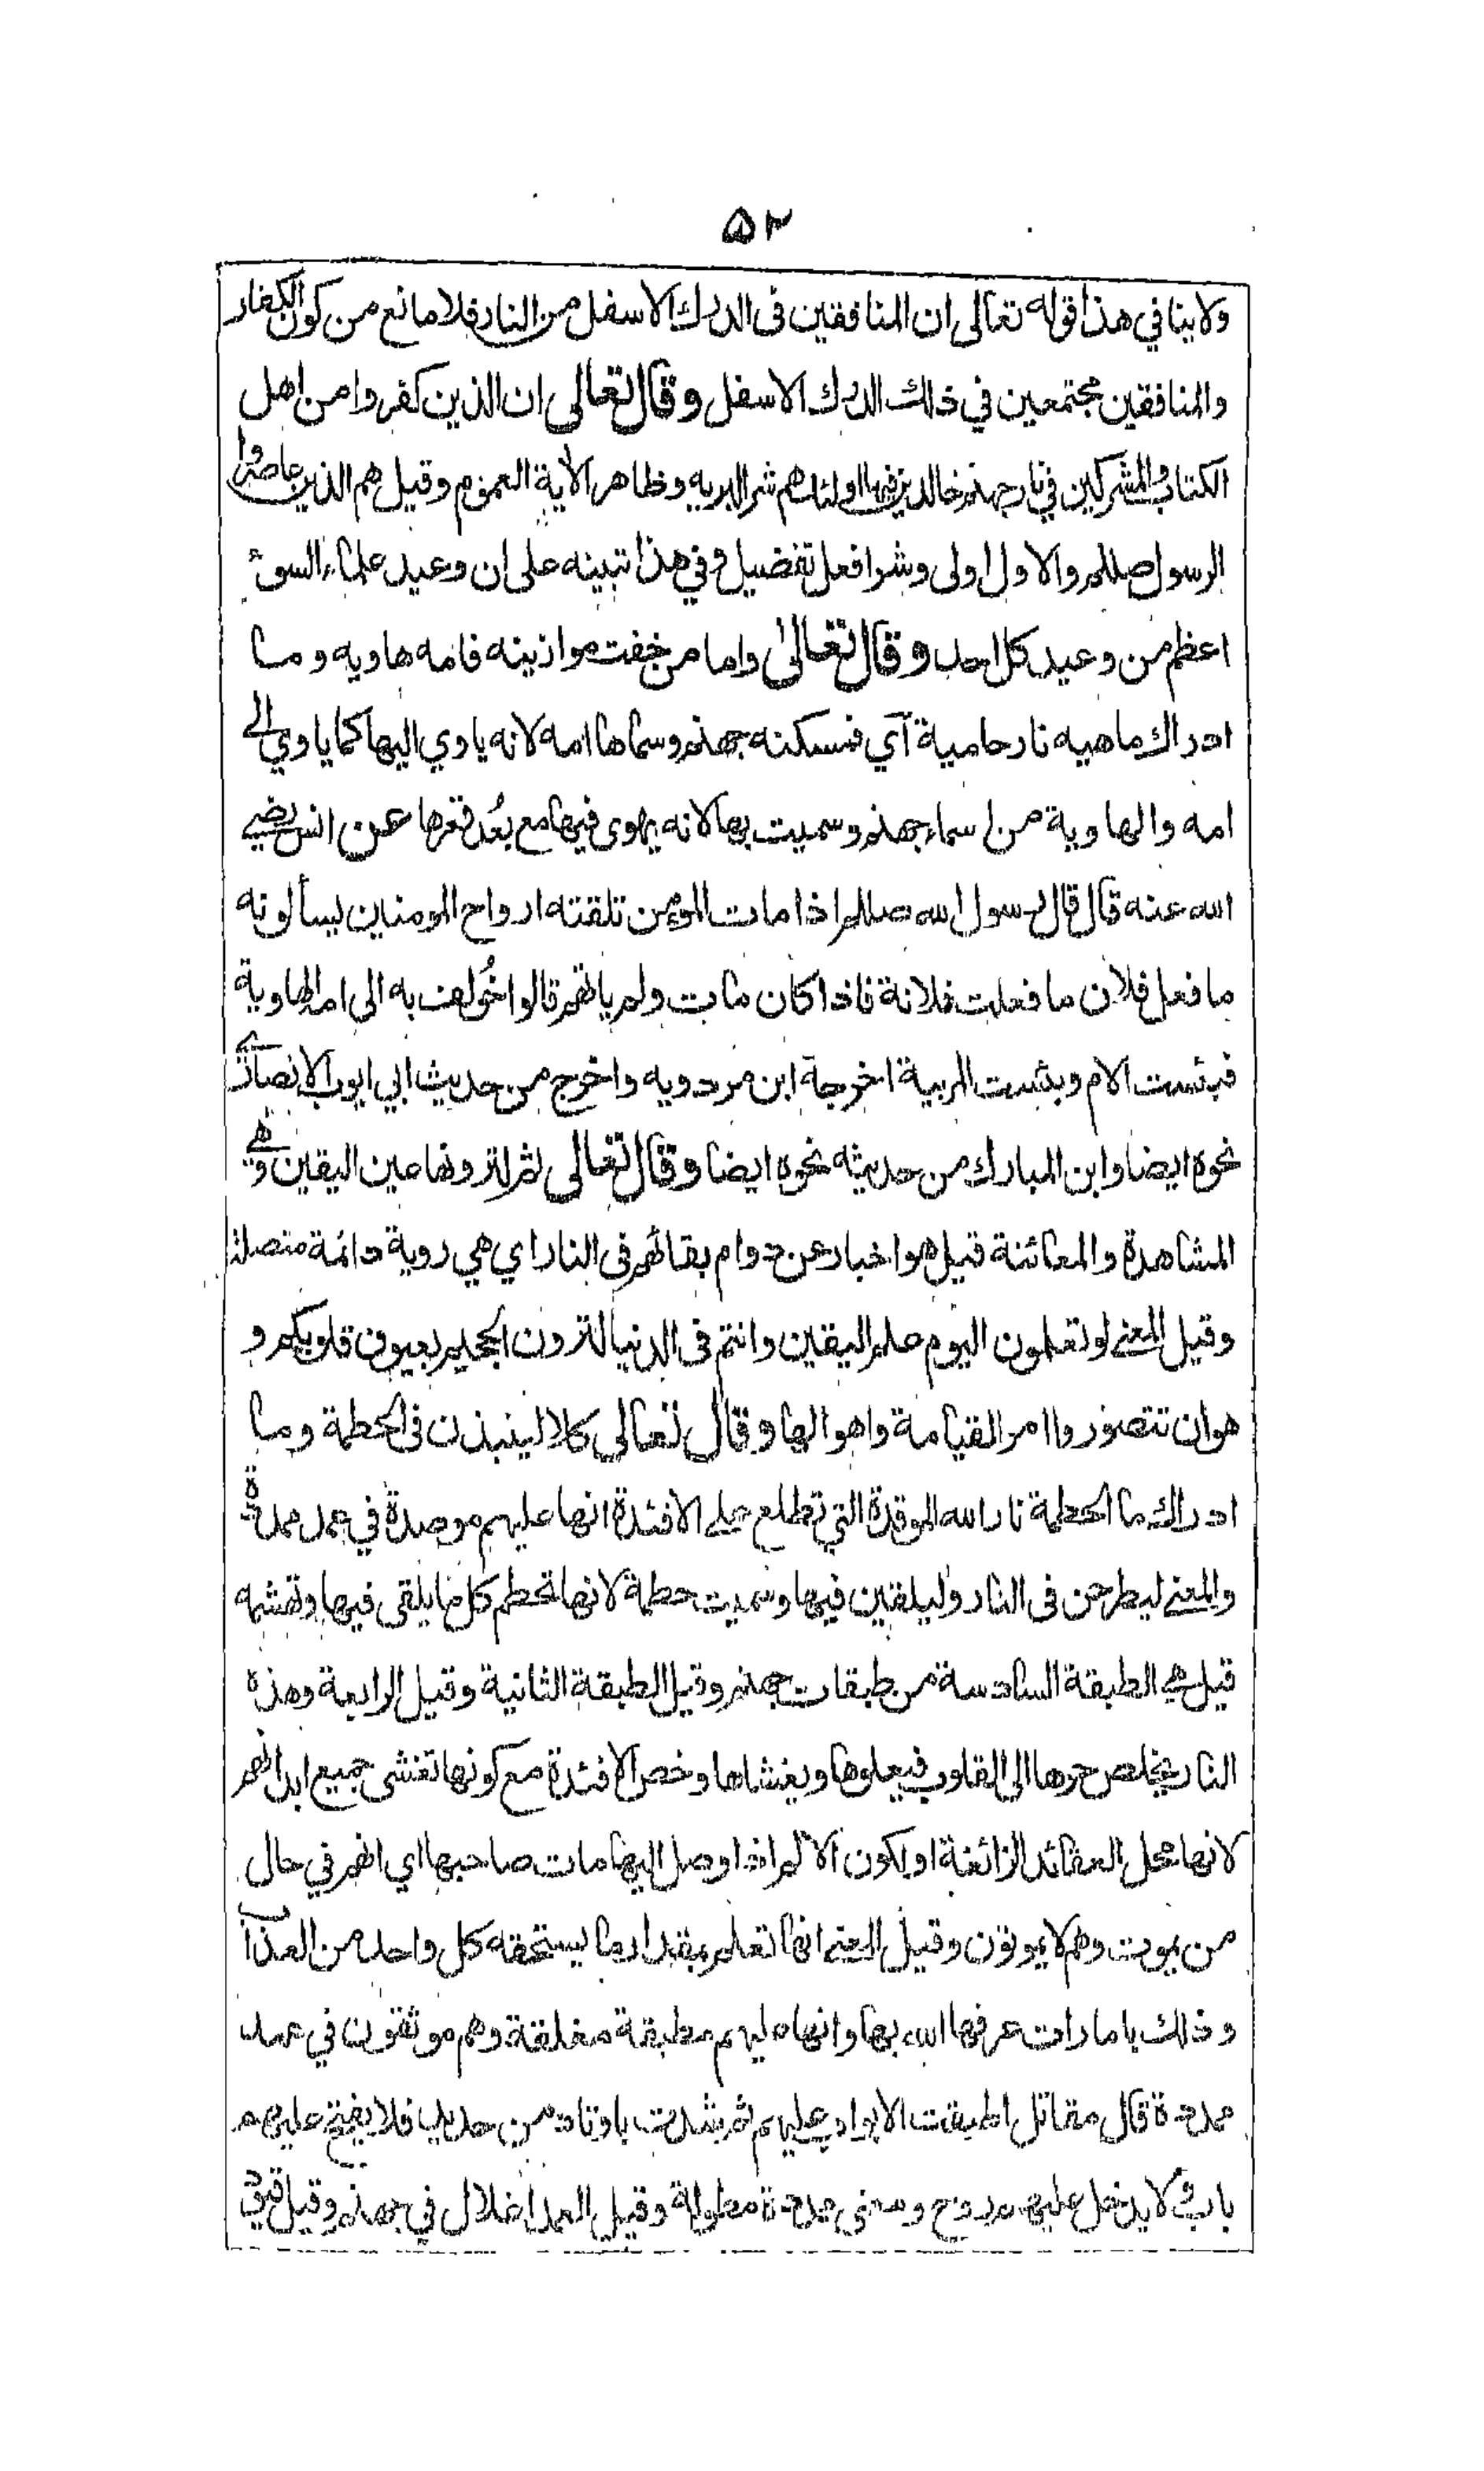 ۵۲
ولا ينافي هذا قوله تعالى ان المنافقين في الدرك الاسفل من النار فلا مانع من كون الكفار
والمنافقين مجتمعين في ذلك الدرك الاسفل وقال تعالى ان الذين كفروا من اهل
الكتاب والمشركين في نار جهنم خالدين فيها اولئك هم شر البريه وظاهر الآية العموم وقيل هم الذين عاصروا
الرسول صللم والاول اولى وشر افعل تفضيل وفي هذا تبينه على ان وعيد علماء السوء
اعظم من وعيد كل احد وقال تعالىٰ واما من خفت موازينه فامه هاويه وما
ادراك ماهيه نار حامية آي فمسكنه جهنم وسماها امه لانه ياوي اليها كما ياوي الے
امه والهاوية من اسماء جهنم وسميت بها لانه يهوى فيها مع بُعد قعرها عن انس رضي
الله عنه قال قال رسول الله صللم اذا مات المومن تلقته ارواح المومنين يسألونه
ما فعل فلان ما فعلت فلانة فاذا كان مات ولم ياتهم قالوا خُولف به الى امه الهاوية
فبئست الام وبئست المربية اخرجة ابن مردويه واخرج من حديث ابي ايوب الانصاري
نحوه ايضا وابن المبارك من حديثه نحوه ايضا وقال تعالى ثم لترونها عين اليقين وهے
المشاهدة والمعائنة قيل هو اخبار عن دوام بقائهم في النار اي هي روية دائمة متصلة
وقيل المعنے لو تعلمون اليوم علم اليقين وانتم في الدنيا لترون الجحيم بعيون قلوبكم و
هو ان تتصوروا امر القيامة واهوالها وقال تعالى كلا لينبذن في الحطمة وما
ادراك ما الحطمة نار الله الموقدة التي تطلع علے الافئدة انها عليهم موصدة في عمد ممددة
والمعنے ليطرحن في النار وليلقين فيها وسميت حطمة لانها تحطم كل ما يلقى فيها وتهشمه
قيل هے الطبقة السادسة من طبقات جهنم وقيل الطبقة الثانية وقيل الرابعة وهذه
النار يخلص حرها الى القلوب فيعلوها ويغشاها وخص الافئدة مع كونها تغشى جميع ابدانهم
لانها محل العقائد الزائغة او لكون الالم اذا وصل اليها مات صاحبها اي انهم في حال
من يموت وهم لا يموتون وقيل المعنے انها تعلم بمقدار ما يستحقه كل واحد من العذاب
وذلك بامارات عرفها الله بها وانها عليهم مطبقة مغلقة وهم موثقون في عمد
ممددة قال مقاتل اطبقت الابواب عليهم ثم شدت باوتاد من حديد فلا يفتح عليهم
باب ولا يدخل عليهم روح ومعنى ممددة مطولة وقيل العمد اغلال في جهنم وقيل قيود